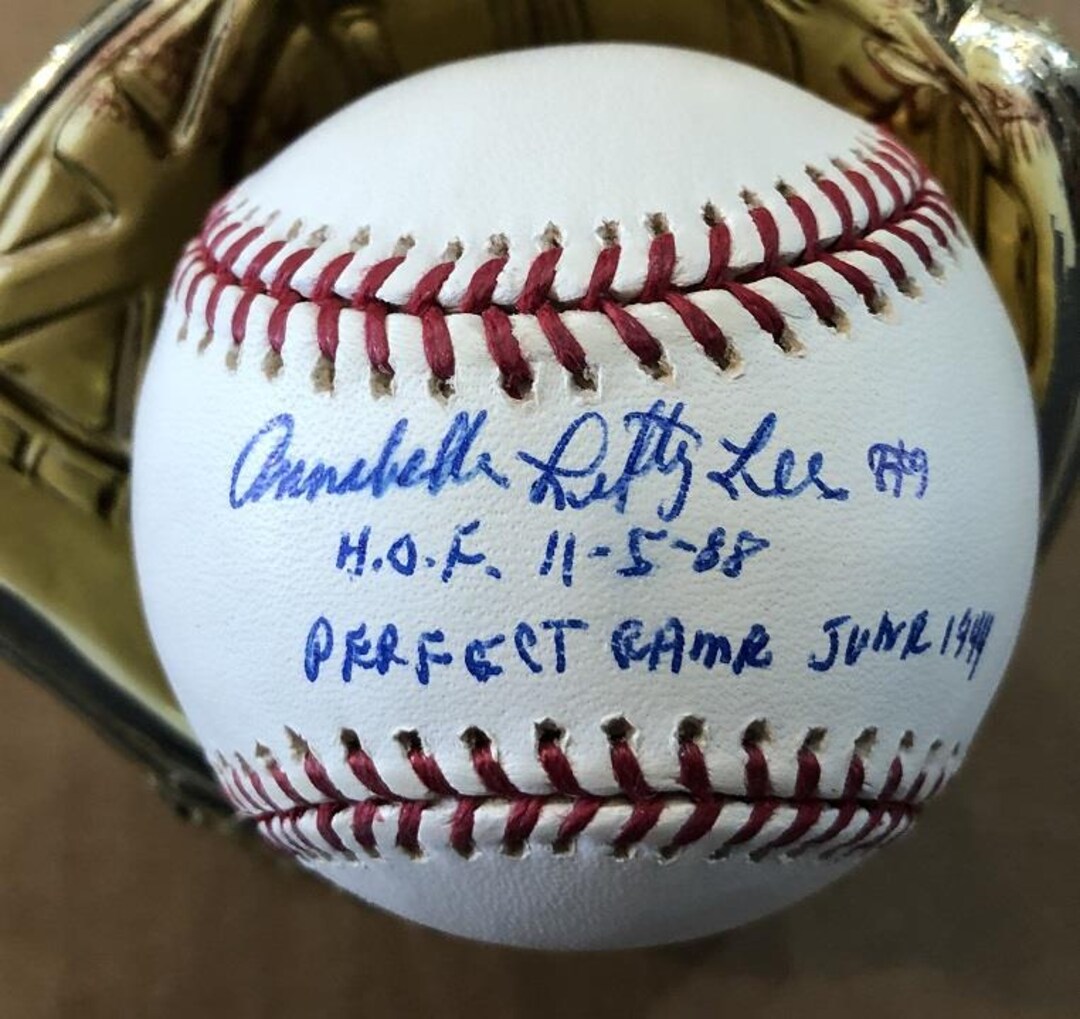 Annabelle Lefty Lee #9
H.O.F. 11-5-88
PERFECT GAME JUNE 1944